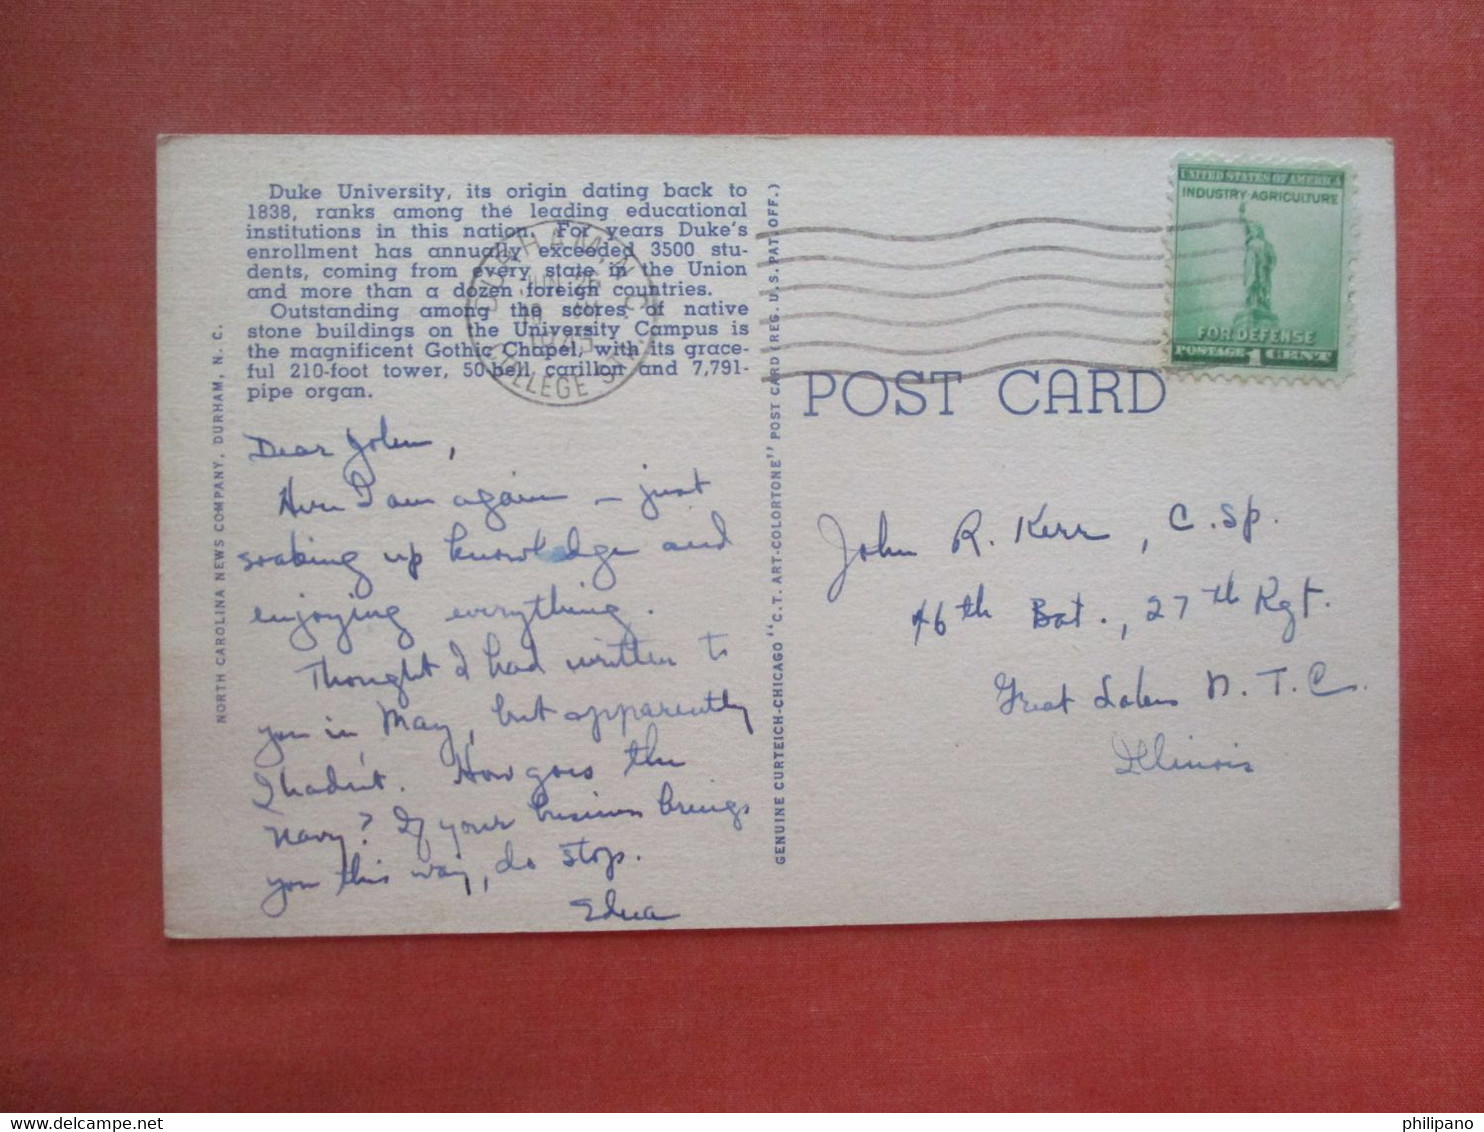 Duke University, its origin dating back to
1838, ranks among the leading educational
institutions in this nation. For years Duke's
enrollment has annually exceeded 3500 stu-
dents, coming from every state in the Union
and more than a dozen foreign countries.
Outstanding among the scores of native
stone buildings on the University Campus is
the magnificent Gothic Chapel, with its grace-
ful 210-foot tower, 50-bell carillon and 7,791-
pipe organ.
NORTH CAROLINA NEWS COMPANY, DURHAM, N. C.
Dear John,
Here I am again — just
soaking up knowledge and
enjoying everything.
Thought I had written to
you in May, but apparently
I hadn't. How goes the
Navy? If your business brings
you this way, do stop.
Edna
GENUINE CURTEICH-CHICAGO "C. T. ART-COLORTONE" POST CARD (REG. U. S. PAT. OFF.)
DURHAM, N.C.
JUN 26
COLLEGE STA.
UNITED STATES OF AMERICA
INDUSTRY·AGRICULTURE
FOR DEFENSE
POSTAGE 1 CENT
POST CARD
John R. Kerr, C. Sp.
46th Bat., 27th Rgt.
Great Lakes N. T. C.
Illinois
www.delcampe.net
philipano